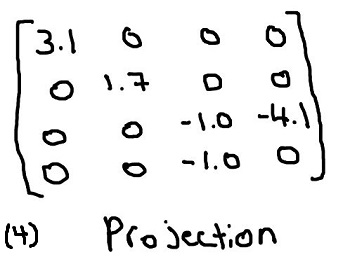 3.1 0 0 0
0 1.7 0 0
0 0 -1.0 -4.1
0 0 -1.0 0
(4) Projection